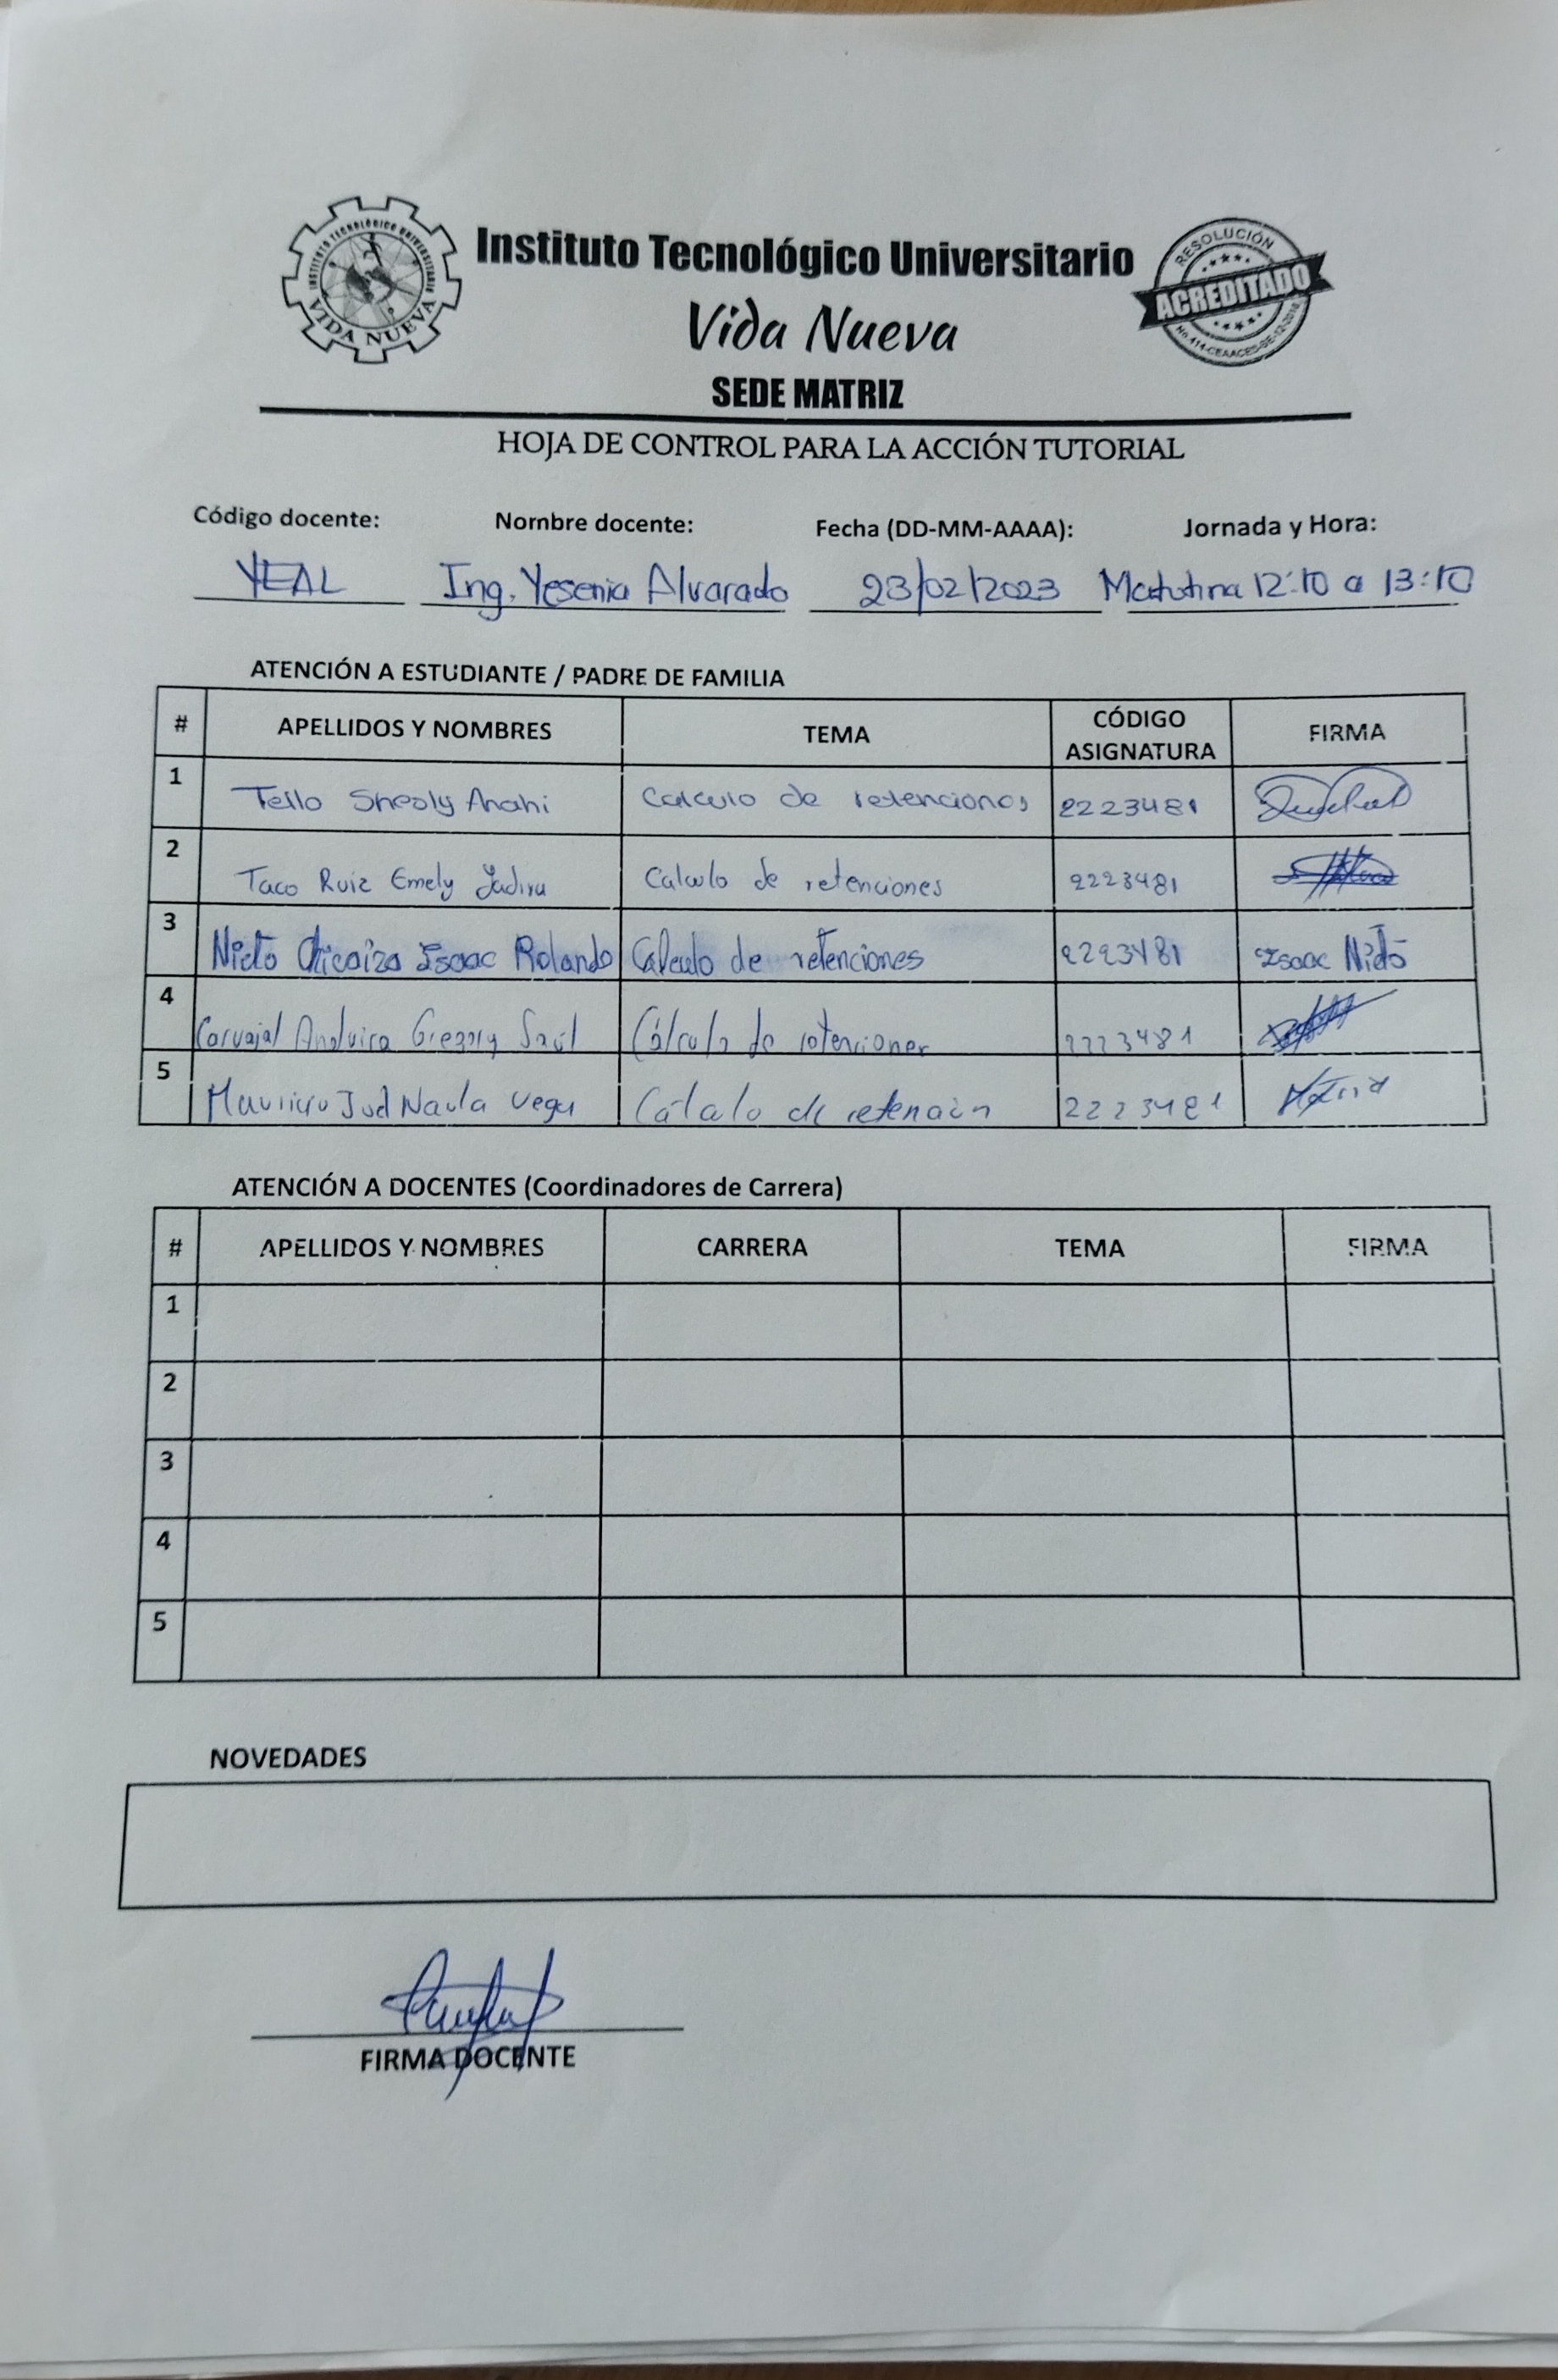 INSTITUTO TECNOLÓGICO UNIVERSITARIO
VIDA NUEVA
Instituto Tecnológico Universitario
Vida Nueva
SEDE MATRIZ
RESOLUCIÓN
ACREDITADO
HOJA DE CONTROL PARA LA ACCIÓN TUTORIAL
Código docente: Nombre docente: Fecha (DD-MM-AAAA): Jornada y Hora:
YEAL Ing. Yesenia Alvarado 23/02/2023 Matutina 12:10 a 13:10
ATENCIÓN A ESTUDIANTE / PADRE DE FAMILIA
# APELLIDOS Y NOMBRES TEMA CÓDIGO ASIGNATURA FIRMA
1 Tello Anahi Calculo de retenciones 2223481
2 Taco Ruiz Emely Jadira Calculo de retenciones 2223481
3 Nieto Chicaiza Isaac Rolando Cálculo de retenciones 2223481 Isaac Nieto
4 Carvajal Gregory Saúl Cálculo de retenciones 2223481
5 Mauricio Joel Naula Vega Cálculo de retención 2223481
ATENCIÓN A DOCENTES (Coordinadores de Carrera)
# APELLIDOS Y NOMBRES CARRERA TEMA FIRMA
1
2
3
4
5
NOVEDADES
FIRMA DOCENTE